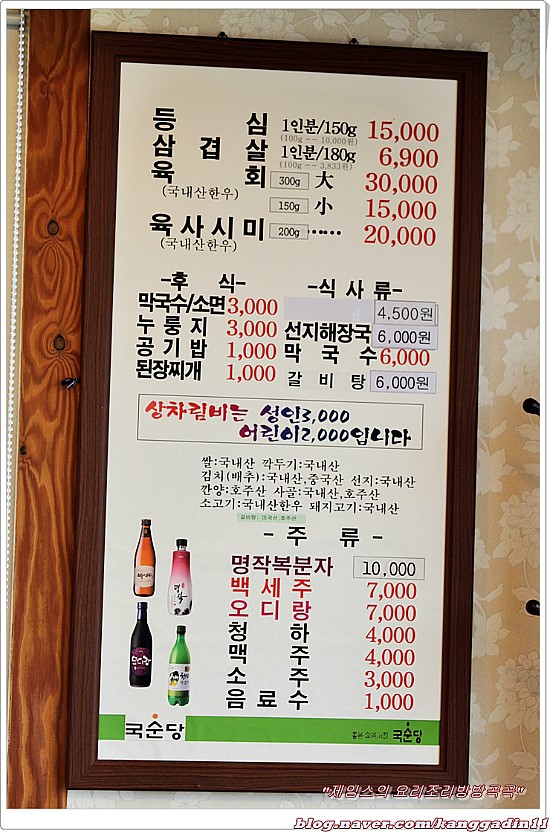 등심 1인분/150g 15,000
(100g -- 10,000원)
삼겹살 1인분/180g 6,900
(100g -- 3,833원)
육회 300g 大 30,000
(국내산한우)
150g 小 15,000
육사시미 200g ...... 20,000
(국내산한우)
-후 식-
막국수/소면 3,000
누룽지 3,000
공기밥 1,000
된장찌개 1,000
-식사류-
4,500원
선지해장국 6,000원
막국수 6,000
갈비탕 6,000원
상차림비는 성인3,000
어린이2,000입니다
쌀:국내산 깍두기:국내산
김치(배추):국내산,중국산 선지:국내산
깐양:호주산 사골:국내산,호주산
소고기:국내산한우 돼지고기:국내산
갈비탕: 미국산,호주산
- 주 류 -
명작복분자 10,000
백세주 7,000
오디랑 7,000
청하 4,000
맥주 4,000
소주 3,000
음료수 1,000
국순당
국순당
"제임스의 요리조리방방곡곡"
blog.naver.com/kanggadin11